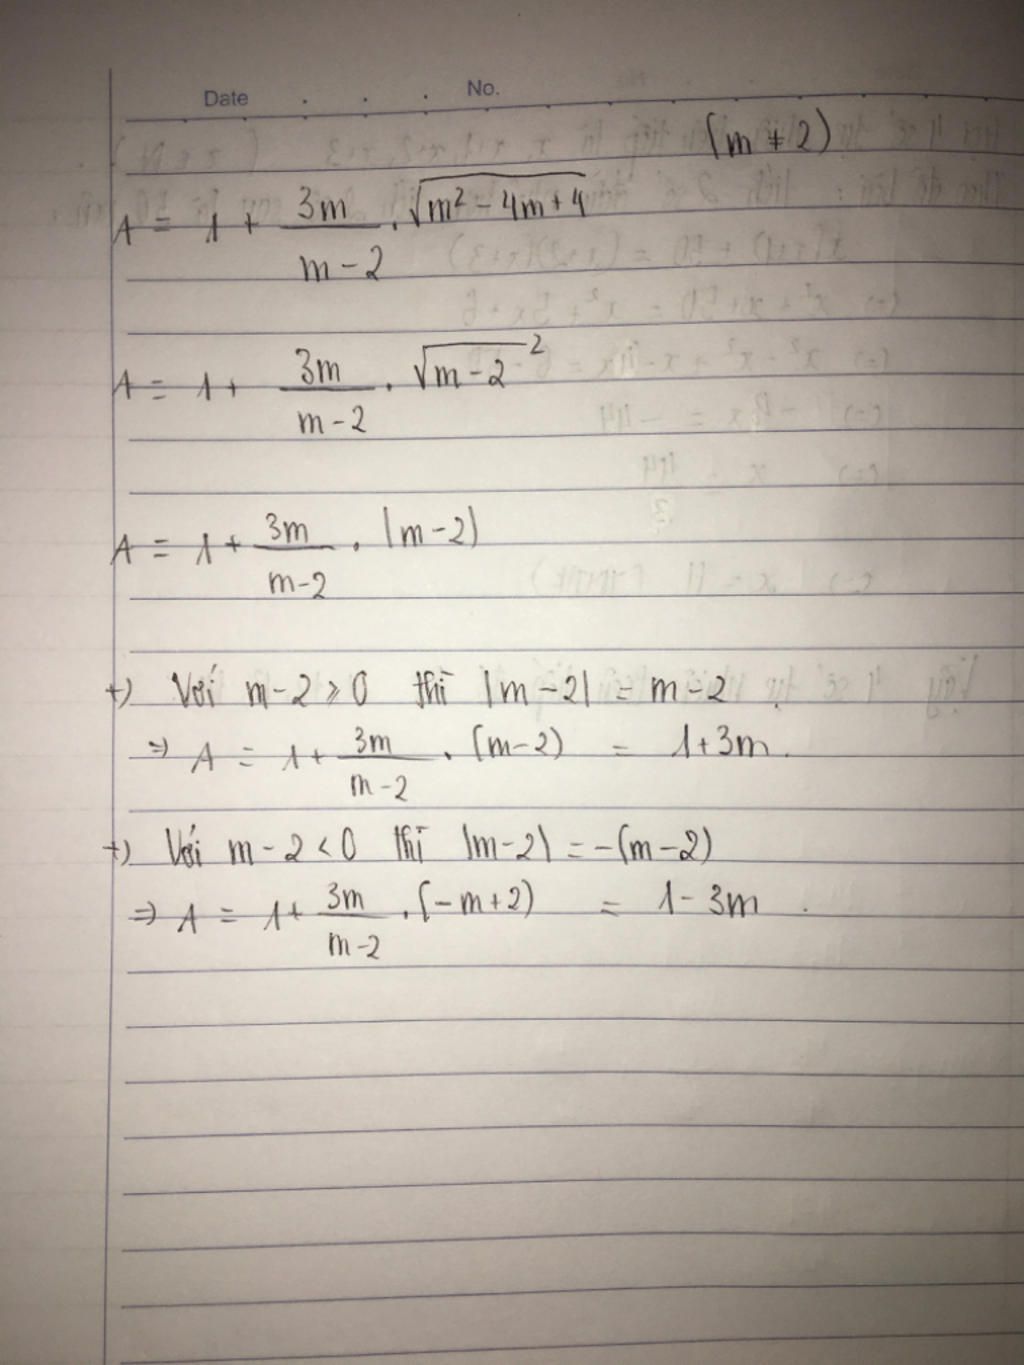 Date . . . No.
(m ≠ 2)
A = 1 + 3m/(m-2) . √(m² - 4m + 4)
A = 1 + 3m/(m-2) . √(m-2)²
A = 1 + 3m/(m-2) . |m-2|
+) Với m-2 ≥ 0 thì |m-2| = m-2
⇒ A = 1 + 3m/(m-2) . (m-2) = 1+3m.
+) Với m-2 < 0 thì |m-2| = -(m-2)
⇒ A = 1+ 3m/(m-2) . (-m+2) = 1-3m .